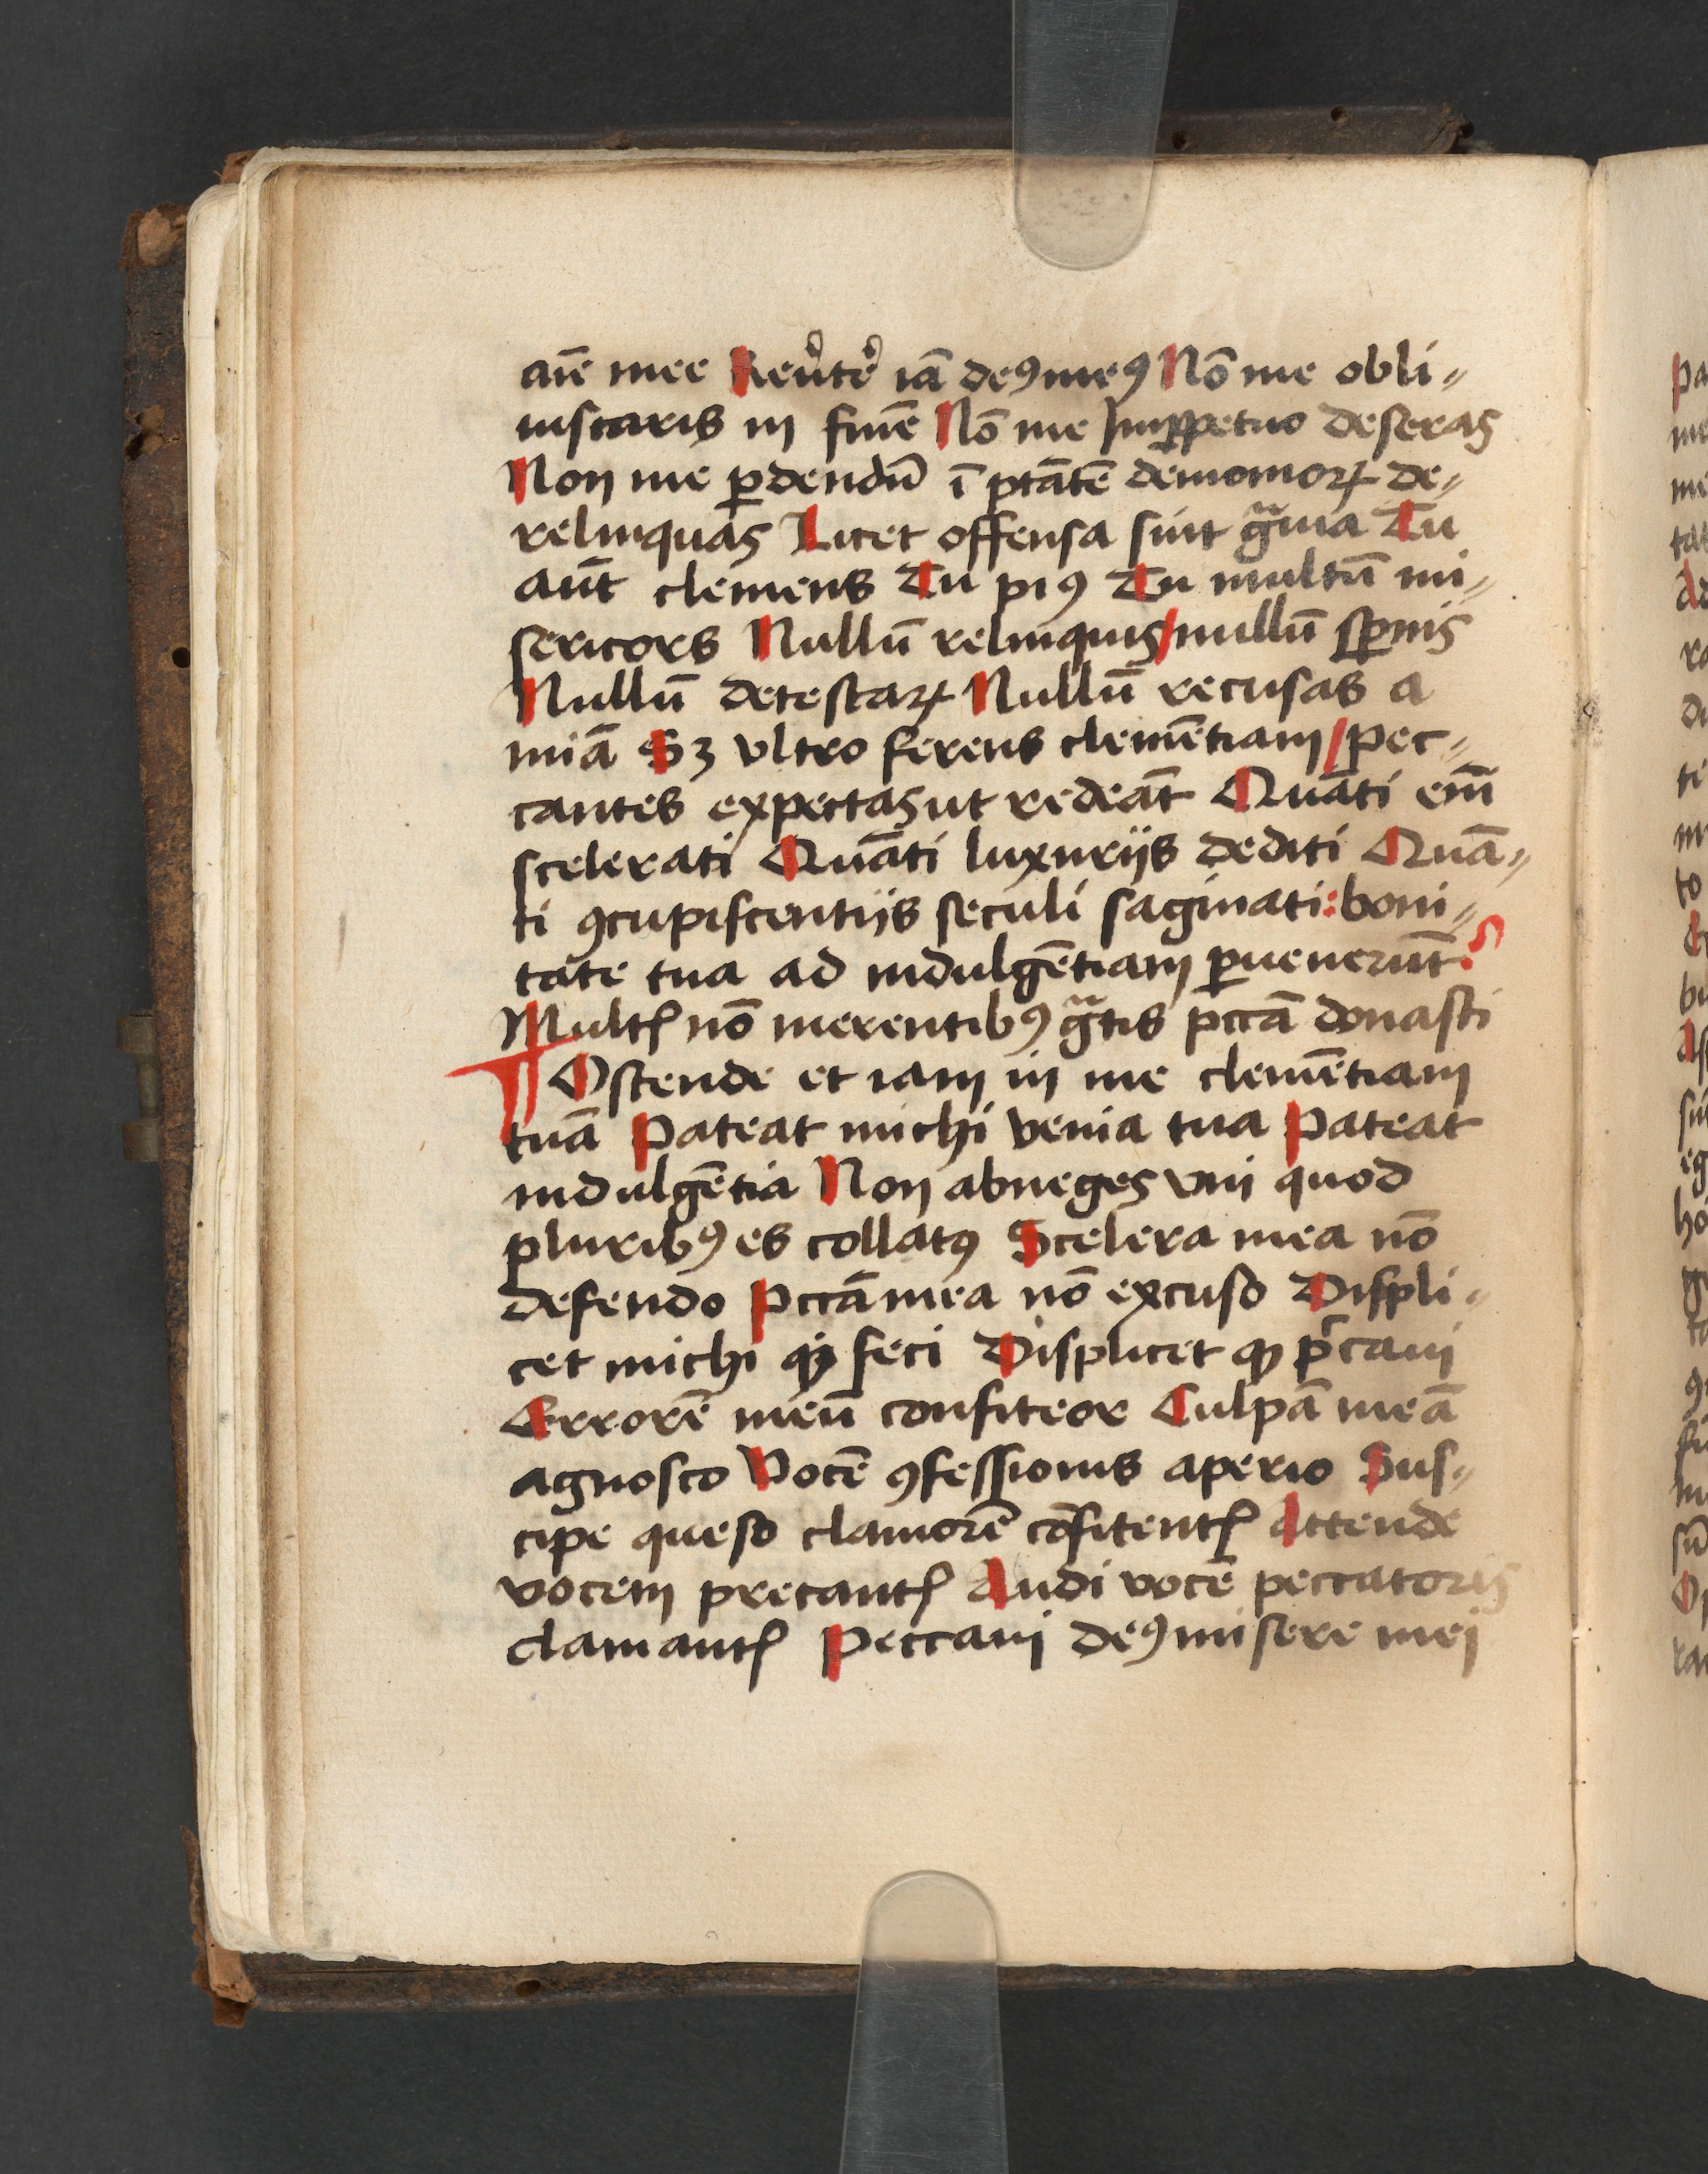 aīe mee Reu̓te̓ iā deꝰ meꝰ Nō me obli⸗
uiscaris in fine Nō me Inꝑpetuo deseras
Non me ꝑdendū ī ptātē demonioꝝ de⸗
relinquas Licet offensa sint gͣuia Tu
aūt clemens Tu piꝰ Tu multū mi⸗
sericors Nullū relinquis/nullū sꝑnis
Nullū detestaꝝ Nullū recusas a
miā Sꝫ vltro ferens clemētiam/pec⸗
cantes expectas ut redeāt Quāti em̄
scelerati Quāti luxuriis dediti Quā⸗
ti ꝯcupiscentiis seculi saginati: boni⸗
tate tua ad indulgētiam ꝑuenerūt?
Multꝭ nō merentibꝰ gͣtis pccā donasti
¶ Ostende et iam in me clemētiam
tuā Pateat michi venia tua Pateat
indulgētia Non abneges vni quod
pluribꝰ es collatꝰ Scelera mea nō
defendo Pccā mea nō excuso Displi⸗
cet michi ꝙ feci Displicet ꝙ pccaui
Errorē meū confiteor Culpā meā
agnosco Vocē ꝯfessionis aperio Sus⸗
cipe queso clamorē cōfitentꝭ Attende
vocem precantꝭ Audi vocē peccatoris
clamantꝭ Peccaui deꝰ misere mei